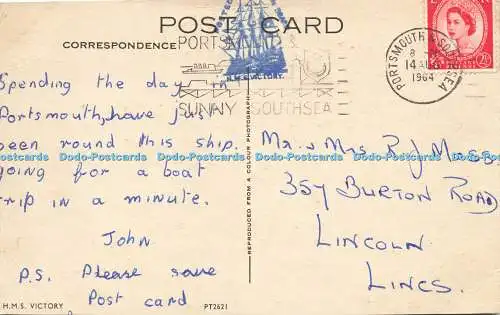 POST CARD
CORRESPONDENCE
PORTSMOUTH &
SUNNY SOUTHSEA
PORTSMOUTH & SOUTHSEA
14 AUG
1964
2½
Spending the day in
Portsmouth, have just
been round this ship.
going for a boat
trip in a minute.
John
P.S. Please save
Post card
Mr. & Mrs R J Moss
357 BURTON ROAD
LINCOLN
LINCS.
REPRODUCED FROM A COLOUR PHOTOGRAPH
H.M.S. VICTORY
PT2621
Dodo-Postcards Dodo-Postcards Dodo-Postcards Dodo-Postcards Dodo-Postcards Dodo-Postcards
Dodo-Postcards Dodo-Postcards Dodo-Postcards Dodo-Postcards Dodo-Postcards Dodo-Postcards